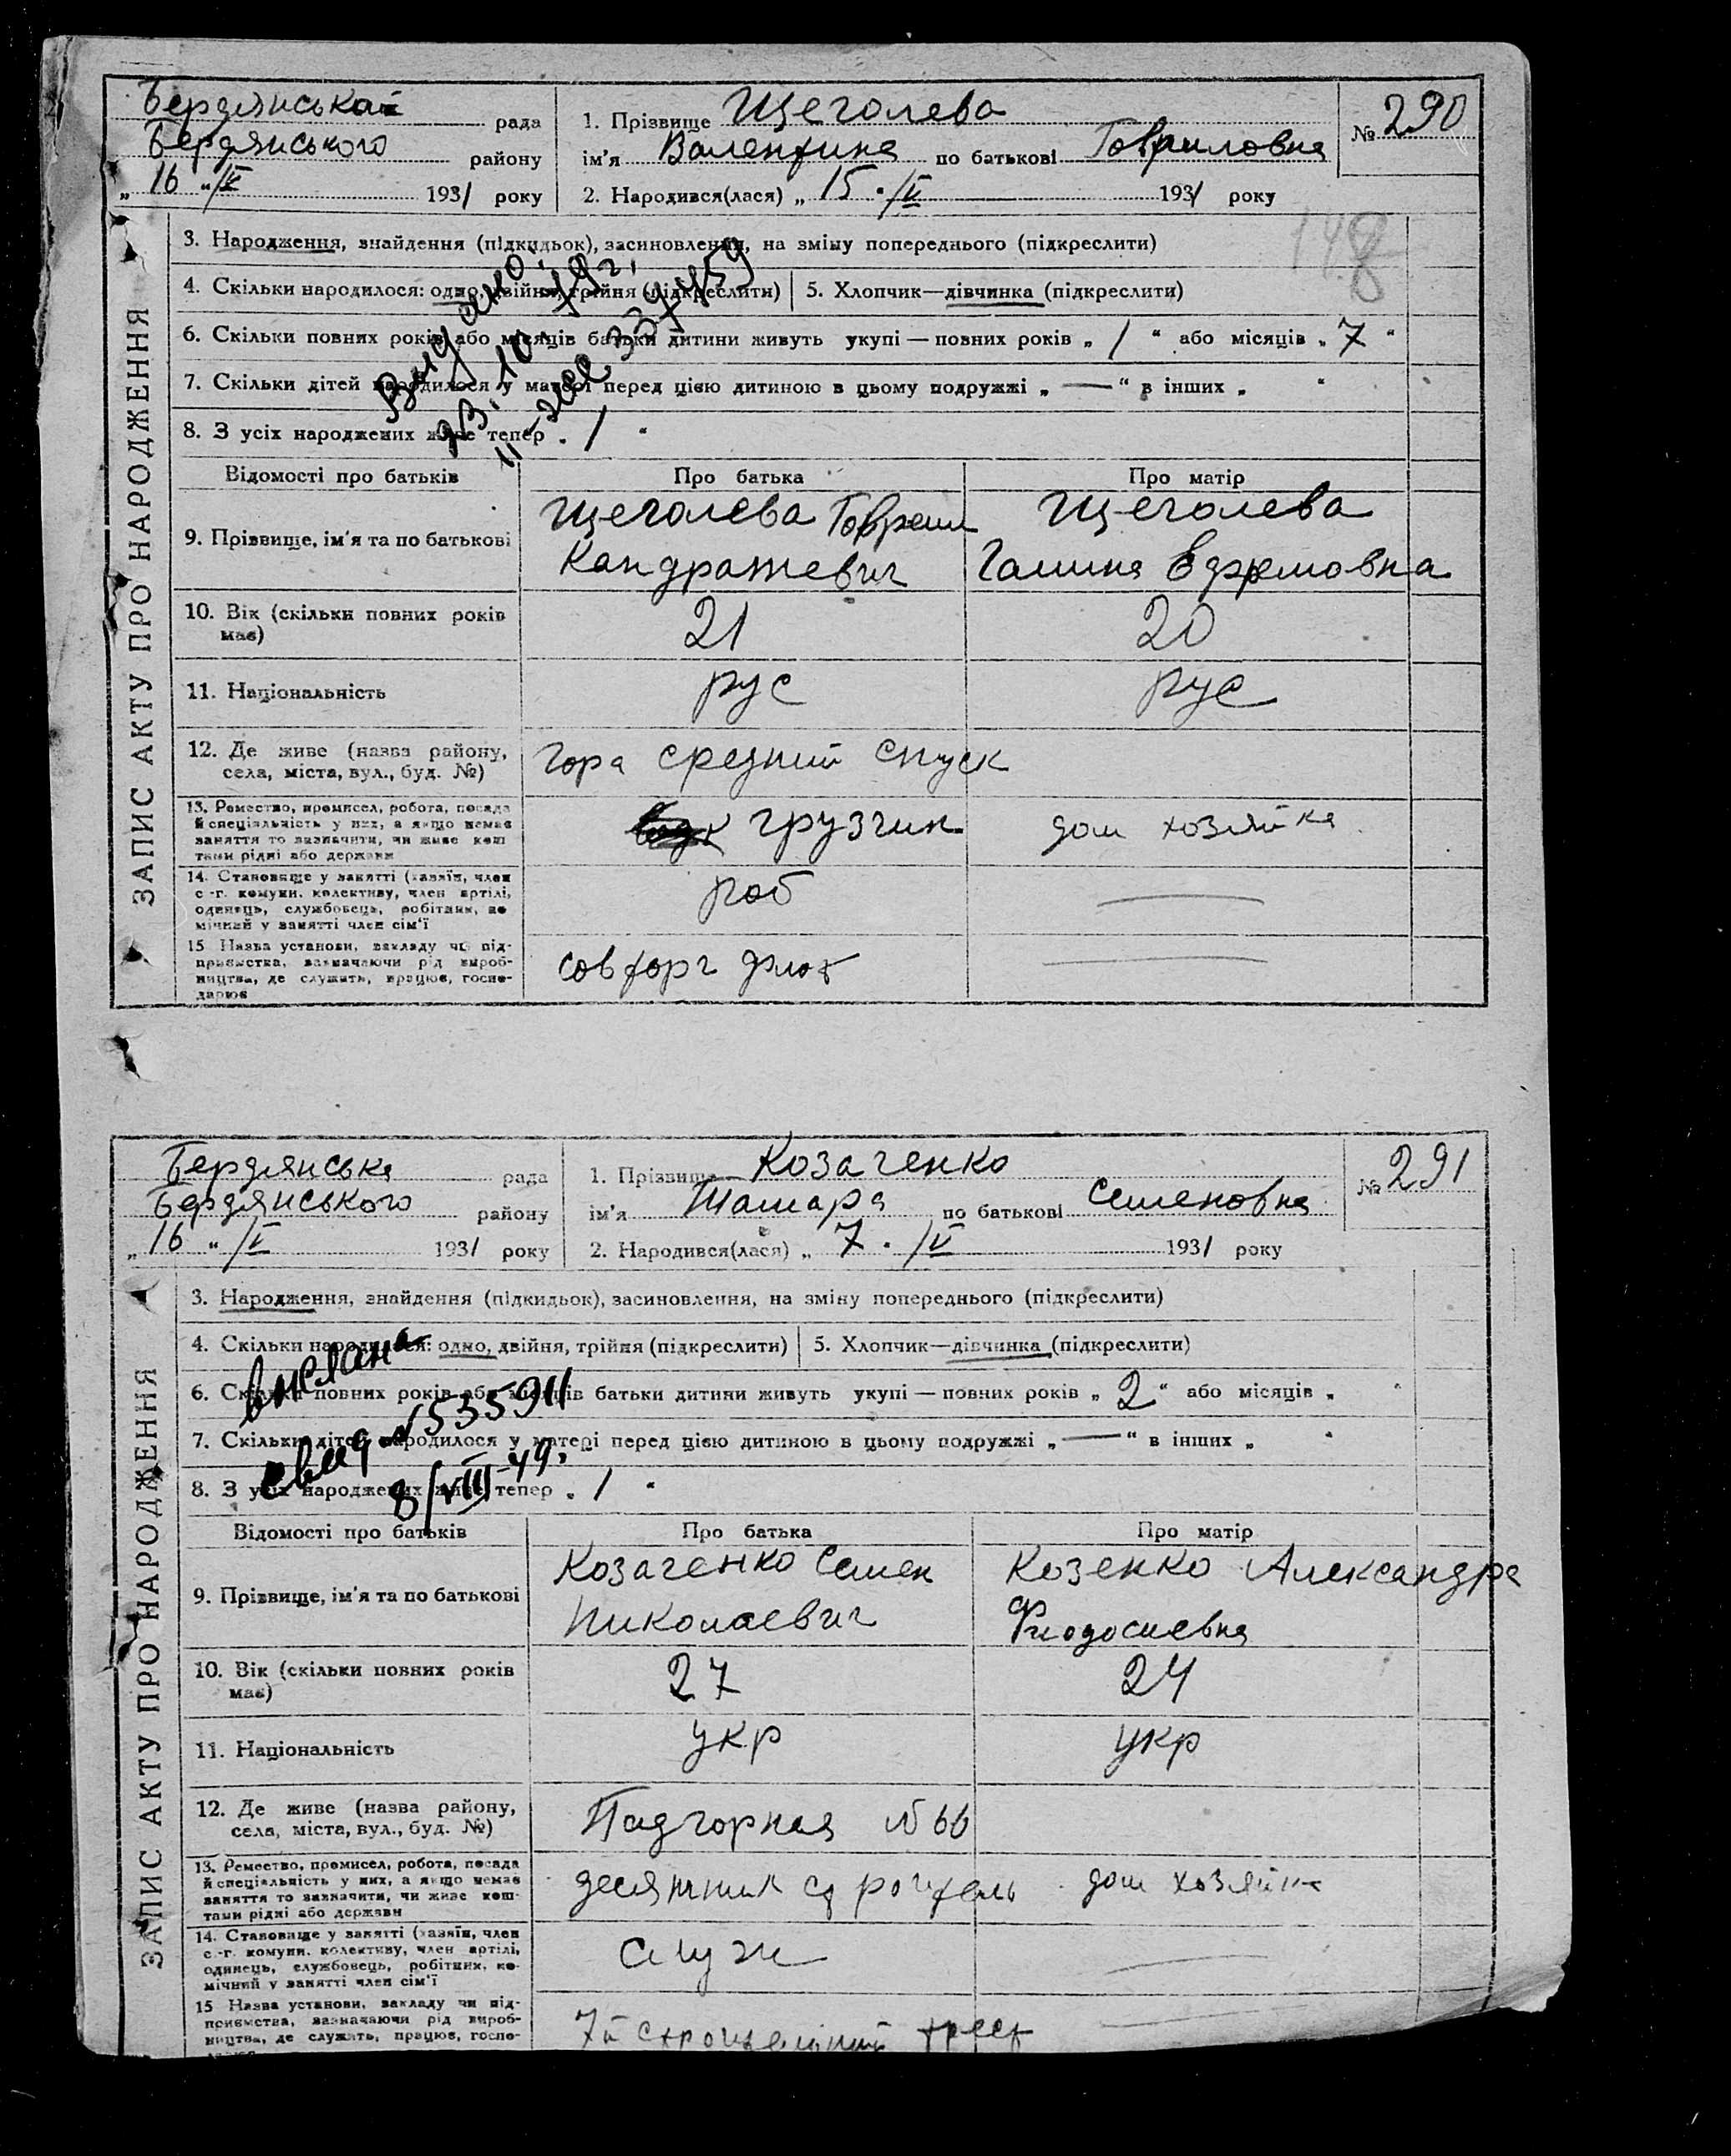 Бердянськая рада
Бердянського району
„ 16 „ /V 1931 року
1. Прізвище Щеголева
ім'я Валентина по батькові Гавриловна
2. Народився(лася) „ 15 " /V 1931 року
№ 290
148
ЗАПИС АКТУ ПРО НАРОДЖЕННЯ
3. Народження, знайдення (підкидьок), засиновлення, на зміну попереднього (підкреслити)
4. Скільки народилося: одно, двійня, трійня (підкреслити) 5. Хлопчик—дівчинка (підкреслити)
6. Скільки повних років або місяців батьки дитини живуть укупі — повних років „ 1 " або місяців „ 7 "
7. Скільки дітей народилося у матері перед цією дитиною в цьому подружжі „ — " в інших „ "
8. З усіх народжених живе тепер „ 1 "
Выдано
Відомості про батьків Про батька Про матір
9. Прізвище, ім'я та по батькові
Щеголева Гавриил
Кандратевич
Щеголева
Галина Ефремовна
10. Вік (скільки повних років має) 21 20
11. Національність рус рус
12. Де живе (назва району, села, міста, вул., буд. №) гора средний спуск
13. Ремество, промисел, робота, посада
й спеціяльність у них, а якщо немає
заняття то зазначити, чи живе кош
тами рідні або держави
грузчик дом хозяйка
14. Становище у занятті (хазяїн, член
с.-г. комуни, колективу, член артілі,
одинець, службовець, робітник, по
мічний у занятті член сім'ї
роб
15 Назва установи, закладу чи під-
приємства, зазначаючи рід вироб-
ництва, де служить, працює, госпо-
дарює
совторг флот
Бердянська рада
Бердянського району
„ 16 „ /V 1931 року
1. Прізвище Козаченко
ім'я Тамара по батькові Семеновна
2. Народився(лася) „ 7 " /V 1931 року
№ 291
ЗАПИС АКТУ ПРО НАРОДЖЕННЯ
3. Народження, знайдення (підкидьок), засиновлення, на зміну попереднього (підкреслити)
4. Скільки народилося: одно, двійня, трійня (підкреслити) 5. Хлопчик—дівчинка (підкреслити)
6. Скільки повних років або місяців батьки дитини живуть укупі — повних років „ 2 " або місяців „ "
7. Скільки дітей народилося у матері перед цією дитиною в цьому подружжі „ — " в інших „ "
8. З усіх народжених живе тепер „ 1 "
8/VIII-49.
Відомості про батьків Про батька Про матір
9. Прізвище, ім'я та по батькові
Козаченко Семен
Николаевич
Козенко Александра
Фиодосиевна
10. Вік (скільки повних років має) 27 24
11. Національність укр укр
12. Де живе (назва району, села, міста, вул., буд. №) Падгорная № 66
13. Ремество, промисел, робота, посада
й спеціяльність у них, а якщо немає
заняття то зазначити, чи живе кош-
тами рідні або держави
десятник строитель дом хозяйка
14. Становище у занятті (хазяїн, член
с.-г. комуни, колективу, член артілі,
одинець, службовець, робітник, по-
мічний у занятті член сім'ї
служ
15 Назва установи, закладу чи під-
приємства, зазначаючи рід вироб-
ництва, де служить, працює, госпо-
7й трест